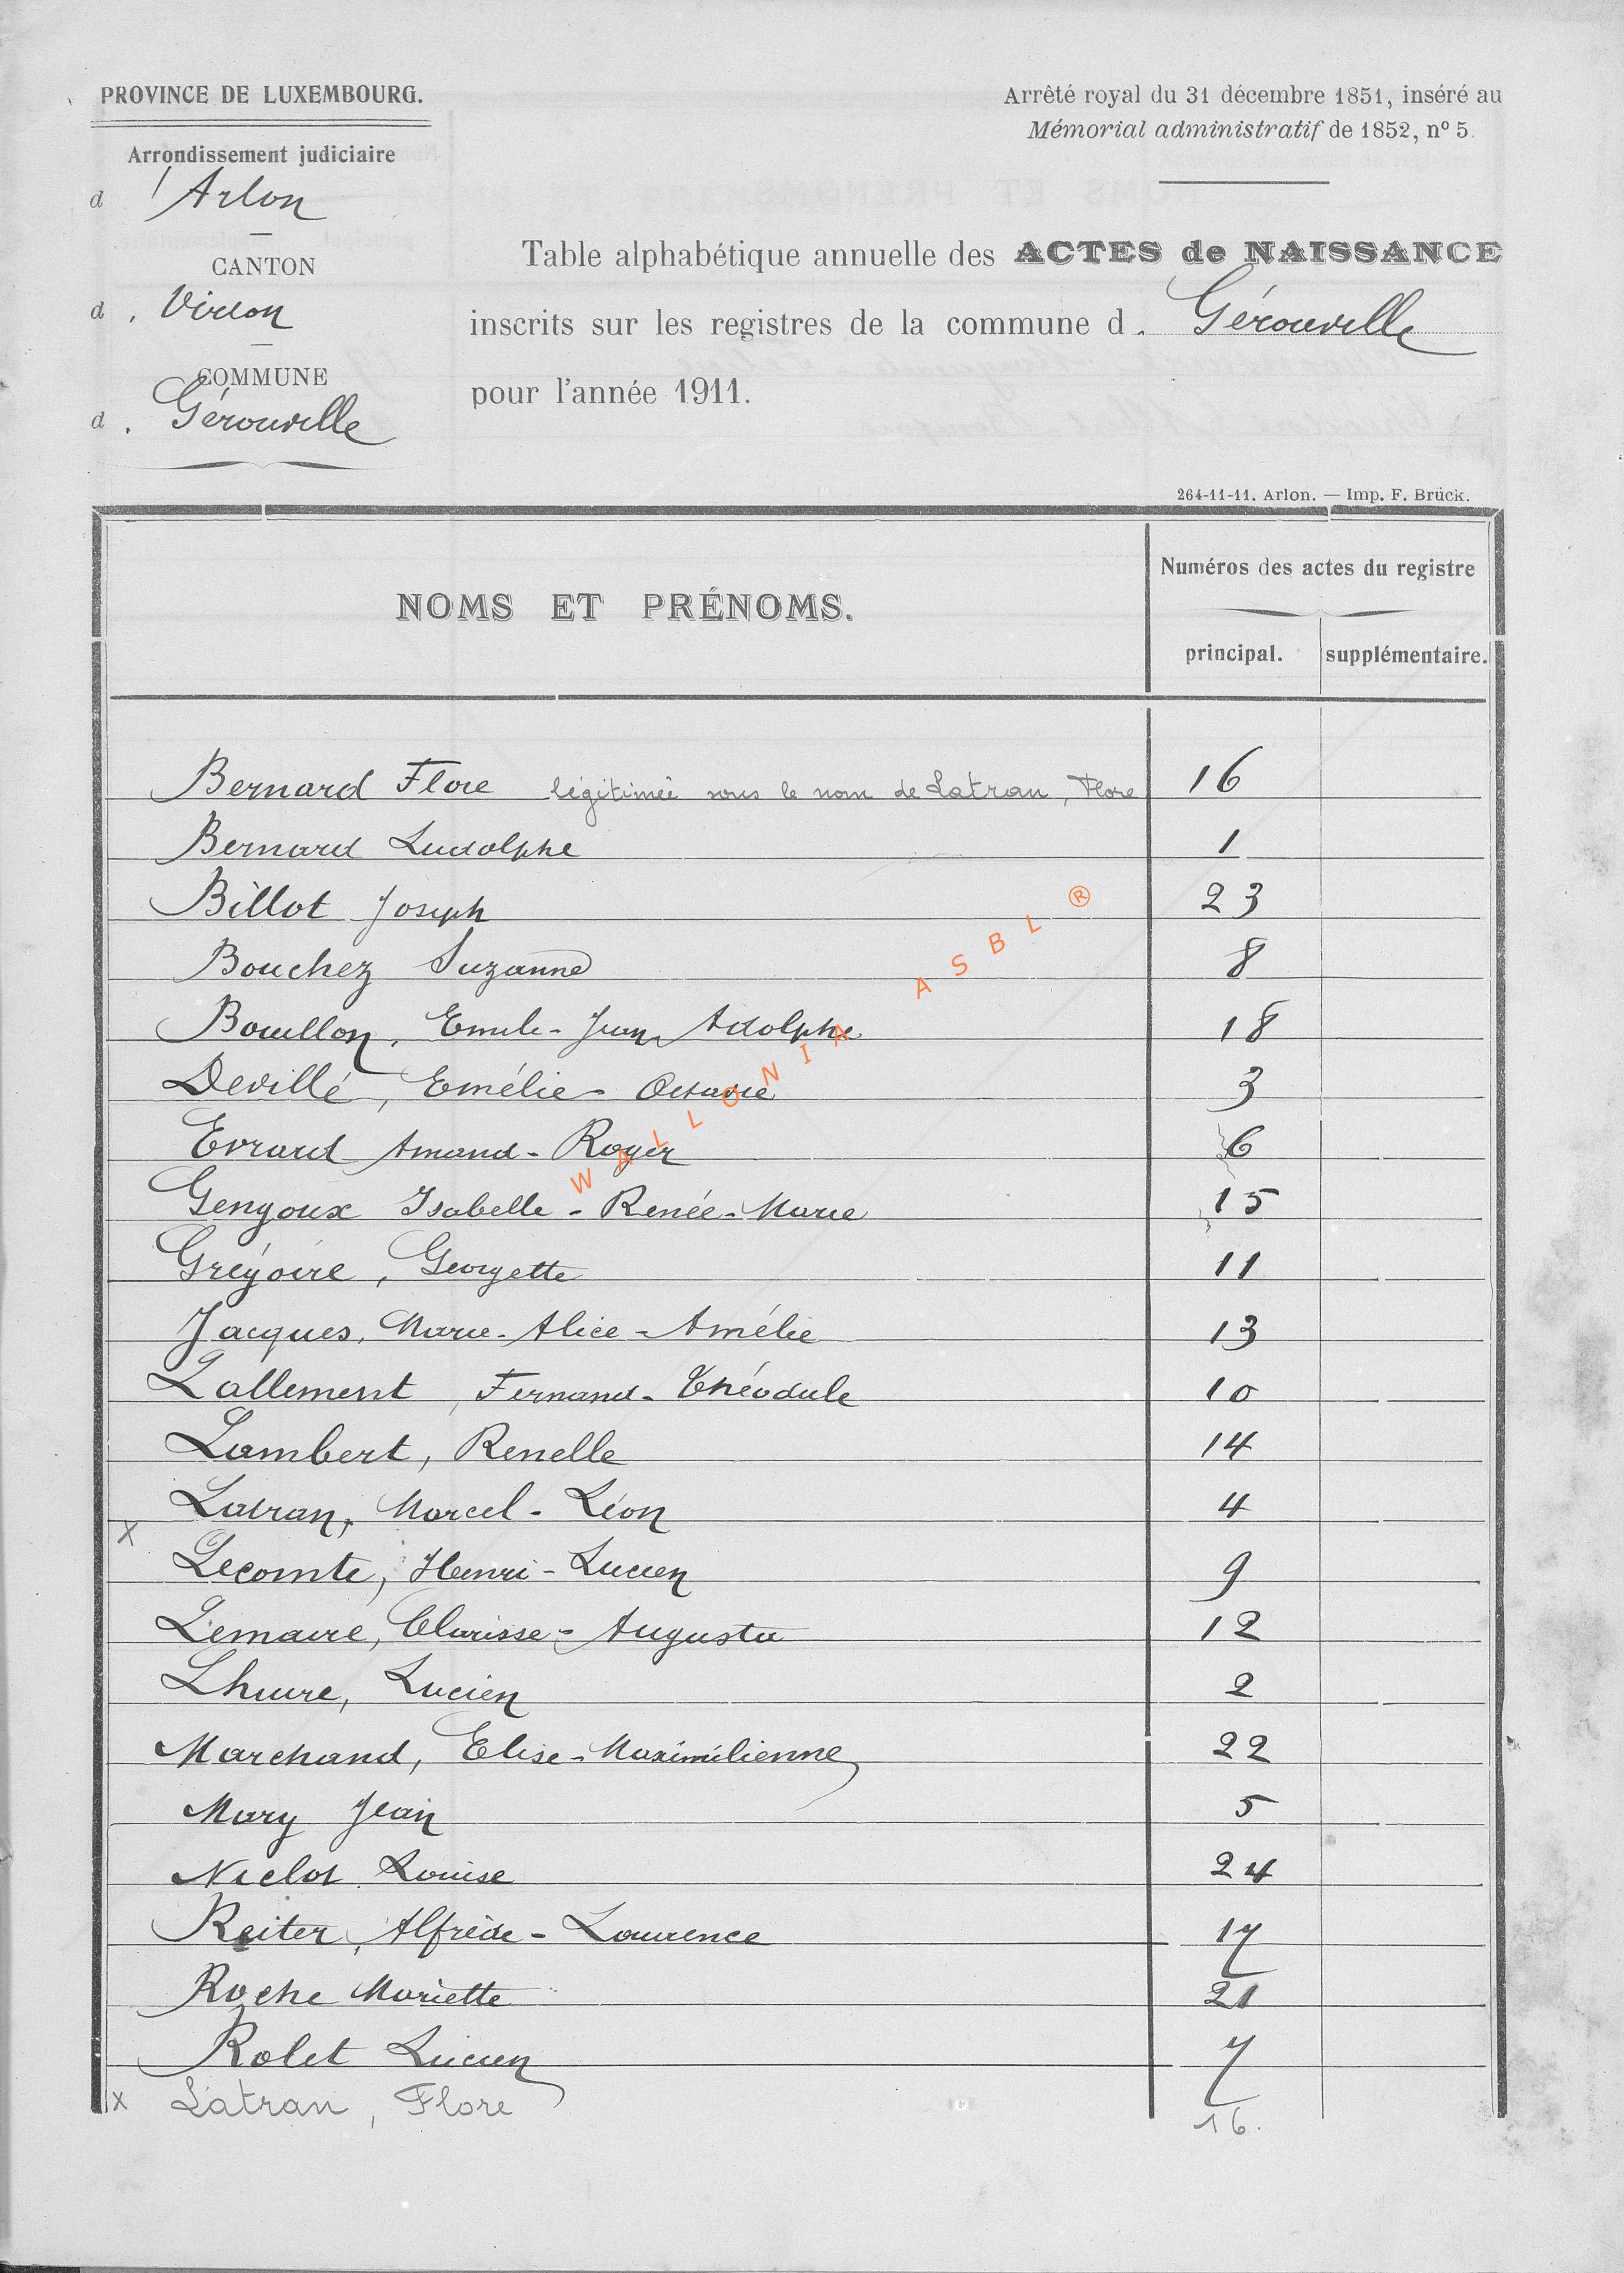 PROVINCE DE LUXEMBOURG.
Arrêté royal du 31 décembre 1851, inséré au
Mémorial administratif de 1852, nº 5.
Arrondissement judiciaire
d'Arlon
CANTON
d. Virton
COMMUNE
d. Gérouville
Table alphabétique annuelle des ACTES de NAISSANCE
inscrits sur les registres de la commune d. Gérouville
pour l'année 1911.
264-11-11. Arlon. — Imp. F. Brück.
NOMS ET PRÉNOMS.
Numéros des actes du registre
principal. supplémentaire.
Bernard Flore légitimée sous le nom de Latran, Flore 16
Bernard Ludolphe 1
Billot Joseph 23
Bouchez Suzanne 8
Bouillon, Emile-Jean Adolphe 18
Devillé, Emélie-Octavie 3
Evrard Amand-Roger 6
Gengoux Isabelle-Renée-Marie 15
Grégoire, Georgette 11
Jacques, Marie-Alice-Amélie 13
Lallement, Fernand-Théodule 10
Lambert, Renelle 14
Latran, Marcel-Léon 4
x
Lecomte, Henri-Lucien 9
Lemaire, Clarisse-Augusta 12
Lhuire, Lucien 2
Marchand, Elise-Maximilienne 22
Mary Jean 5
Niclot Louise 24
Reiter, Alfrède-Laurence 17
Roche Mariette 21
Rolet Lucien 7
x Latran, Flore 16.
WALLONIA ASBL ®